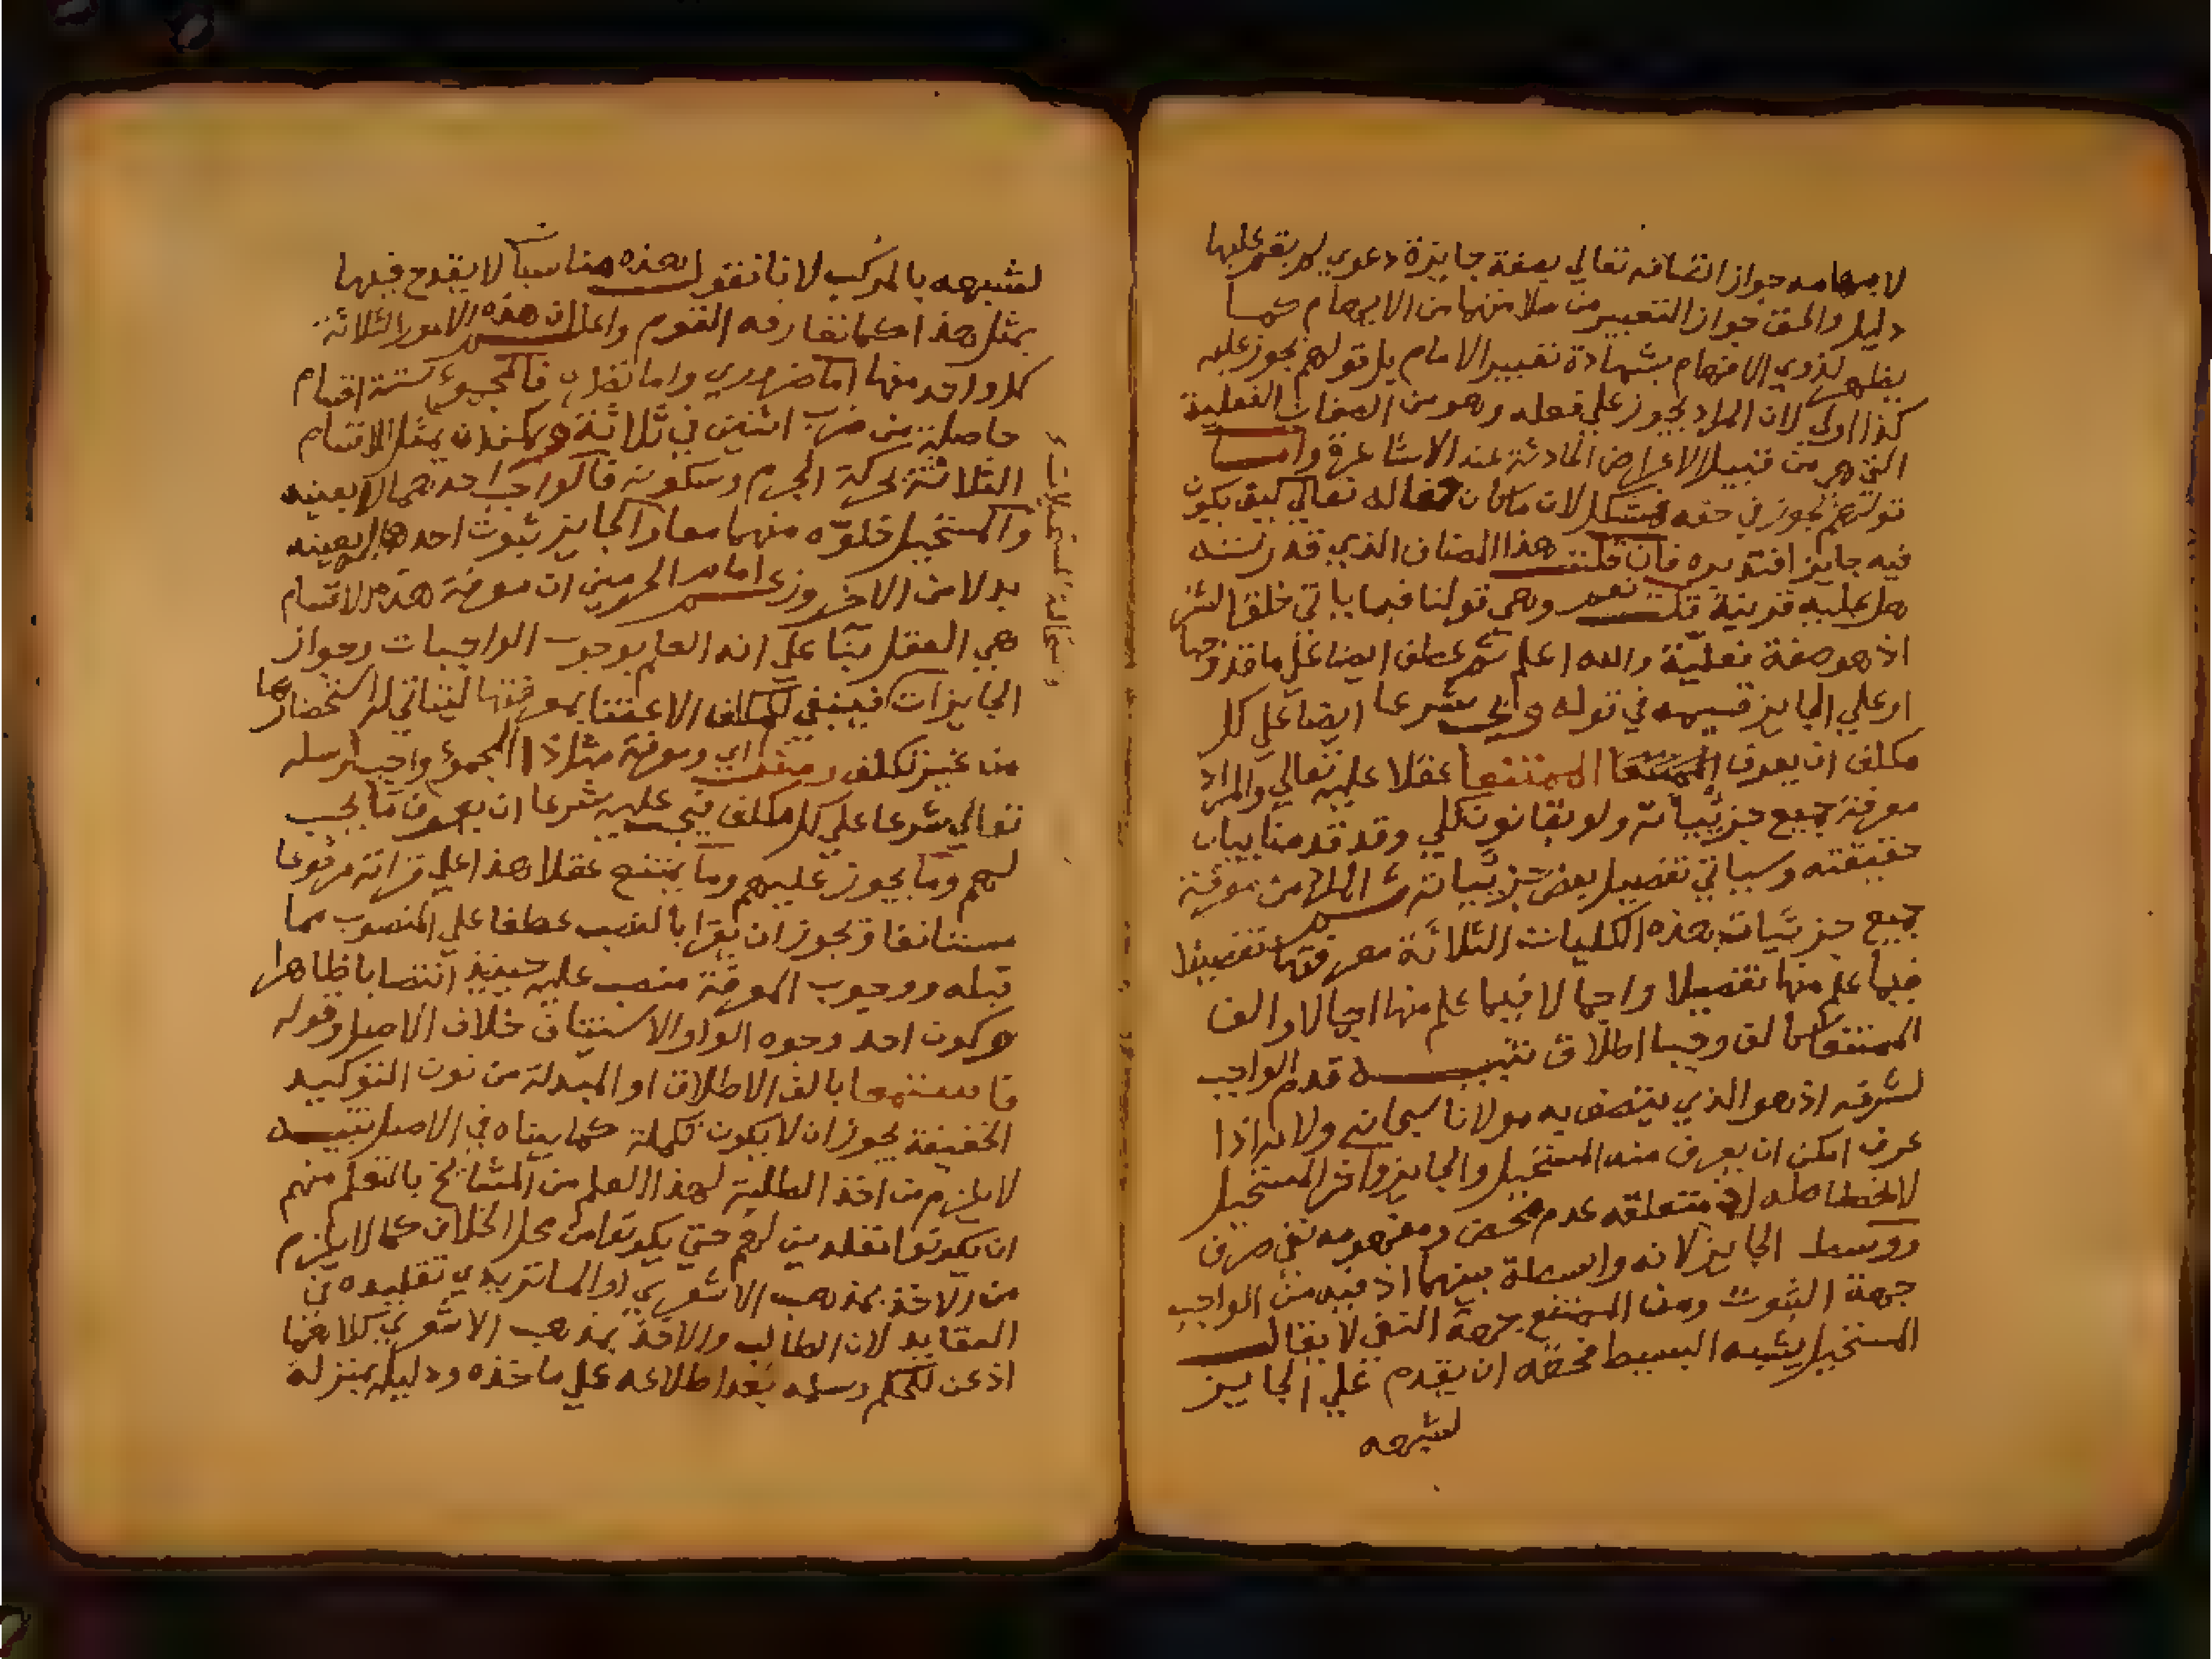 لايهامه جواز اتصافه تعالي بصفة جايزة دعوي لم يقم عليها
دليل والحق جواز التعبير من ملا منهما من الايهام كما
يظهر لذوي الافهام بشهادة تعبير الامام بل قولهم يجوز عليه
كذا اولي لان المراد يجوز علي فعله وهو من الصفات الفعلية
التي هي من قبيل الاعراض الحادثة عند الاشاعرة واما
قولهم يجوز في حقه فمشكل لان ما كان حقا له تعالي كيف يكون
فيه جايز افتدبره فان قلت هذا المضاف الذي قدرته
هل عليه قرينة قلت نعم وهي قولنا فيما ياتي خلق الشر
اذ هو صفة فعلية والله اعلم ثم عطف ايضا علي ما قد وجبا
او علي الجايز قسيمه في قوله واي شرعا ايضا علي كل
مكلف ان يعرف الممتنعا الممتنعا عقلا عليه تعالي والمراد
معرفة جميع جزئياته ولو بقانون كلي وقد قدمنا بيان
حقيقته وسياتي تفصيل بعض جزئياته ثم المراد من معرفة
جميع جزئيات هذه الكليات الثلاثة معرفتها تفصيلا
فيما علم منها تفصيلا واجمالا فيما علم منها اجمالا والف
الممتنعا كالف وجبا اطلاق تنبيه قدم الواجب
لشرفه اذ هو الذي يتصف به مولانا سبحانه ولانه اذا
عرف امكن ان يعرف منه المستحيل والجايز واخر المستحيل
لانحطاطه اذ متعلقه عدم محض ومفهومه نفي صرف
ووسط الجايز لانه واسطة بينهما اذ فيه من الواجب
جهة الثبوت ومن الممتنع جهة النفي لا يقال
المستحيل يشبه البسيط فحقه ان يقدم علي الجايز
لشبهه
لشبهه بالمركب لانا نقول هذه مناسبا لا يقدح فيها
بمثل هذا كما تعارفه القوم واعلم ان هذه الامور الثلاثة
كل واحد منها اما ضروري واما نظري فالمجموع ستة اقسام
حاصلة من ضرب اثنين في ثلاثة ويمكن ان يمثل للاقسام
الثلاثة بحركة الجرم وسكونه فالواجب احدهما لا بعينه
والمستحيل خلوه منهما معا والجايز ثبوت احدهما بعينه
بدلا من الاخر وزعم امام الحرمين ان معرفة هذه الاقسام
هي العقل بنا علي انه العلم بوجوب الواجبات وجواز
الجايزات فينبغي للمكلف الاعتنا بمعرفتها ليتاتي له استحضارها
من غير تكلف ومثل اي ومعرفة مثل ذا المجموع واجب لرسله
تعالي شرعا علي كل مكلف فيجب عليه شرعا ان يعرف ما يجب
لهم وما يجوز عليهم وما يمتنع عقلا هذا علي قراته مرفوعا
مستانفا ويجوز ان يقرا بالنصب عطفا علي المنصوب بما
قبله ووجوب المعرفة منصب عليه حينيذ انتصابا ظاهرا
وكون احد وجوه الواو الاستيناف خلاف الاصل وقوله
فاستمعا بالف الاطلاق او المبدلة من نون التوكيد
الخفيفة يجوز ان لا يكون تكملة كما بيناه في الاصل تنبيه
لا يلزم من اخذ الطلبة لهذا العلم من المشايخ بالتعلم منهم
ان يكونوا مقلدين لهم حتي يكونوا من محل الخلاف كما لا يلزم
من الاخذ بمذهب الاشعري او الماتريدي تقليده في
العقايد لان الطالب والاخذ بمذهب الاشعري كلاهما
اذعن للحكم وسلمه بعد اطلاعه علي ماخذه ودليله بمنزلة